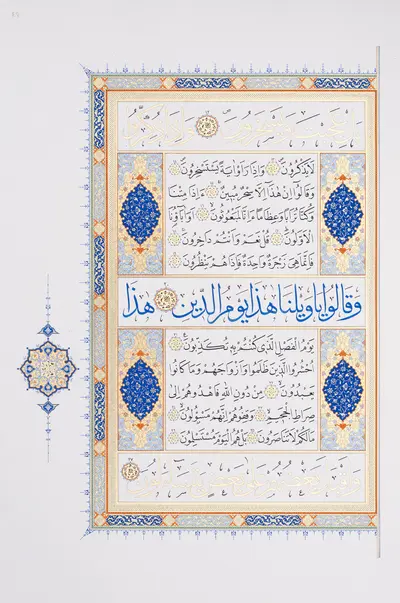 لَا يَذْكُرُونَ وَإِذَا رَأَوْا آيَةً يَسْتَسْخِرُونَ
وَقَالُوا إِنْ هَذَا إِلَّا سِحْرٌ مُبِينٌ وَإِذَا مِتْنَا
وَكُنَّا تُرَابًا وَعِظَامًا ءَإِنَّا لَمَبْعُوثُونَ أَوَآبَاؤُنَا
الْأَوَّلُونَ قُلْ نَعَمْ وَأَنْتُمْ دَاخِرُونَ
فَإِنَّمَا هِيَ زَجْرَةٌ وَاحِدَةٌ فَإِذَا هُمْ يَنْظُرُونَ
وَقَالُوا يَا وَيْلَنَا هَذَا يَوْمُ الدِّينِ هَذَا
يَوْمُ الْفَصْلِ الَّذِي كُنْتُمْ بِهِ تُكَذِّبُونَ
احْشُرُوا الَّذِينَ ظَلَمُوا وَأَزْوَاجَهُمْ وَمَا كَانُوا
يَعْبُدُونَ مِنْ دُونِ اللَّهِ فَاهْدُوهُمْ إِلَى
صِرَاطِ الْجَحِيمِ وَقِفُوهُمْ إِنَّهُمْ مَسْئُولُونَ
مَا لَكُمْ لَا تَنَاصَرُونَ بَلْ هُمُ الْيَوْمَ مُسْتَسْلِمُونَ